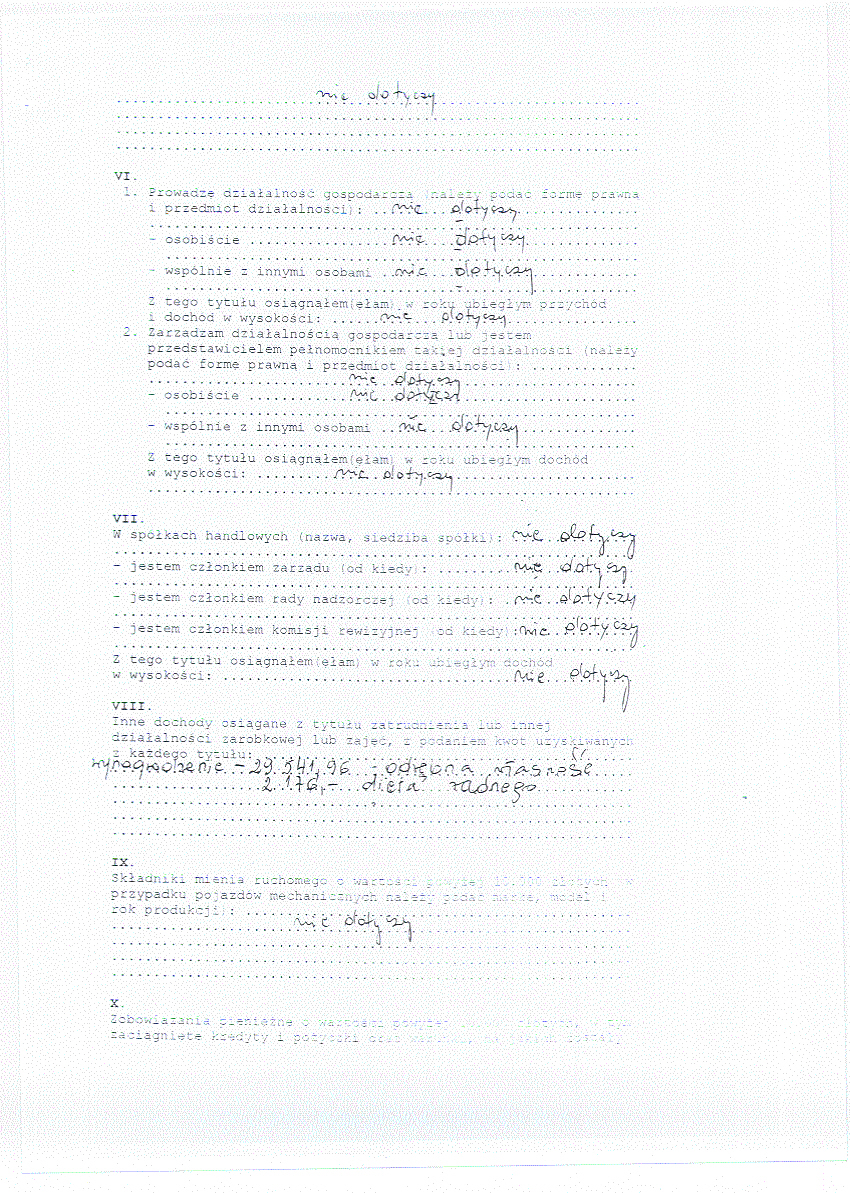 nie dotyczy
VI.
1. Prowadzę działalność gospodarczą (należy podać formę prawną
i przedmiot działalności): ..nie dotyczy
- osobiście ..................nie dotyczy
- wspólnie z innymi osobami ..nie dotyczy
Z tego tytułu osiągnąłem(ęłam) w roku ubiegłym przychód
i dochód w wysokości: ......nie dotyczy
2. Zarządzam działalnością gospodarczą lub jestem
przedstawicielem pełnomocnikiem takiej działalności (należy
podać formę prawną i przedmiot działalności): .............
nie dotyczy
- osobiście ............nie dotyczy
- wspólnie z innymi osobami ..nie dotyczy
Z tego tytułu osiągnąłem(ęłam) w roku ubiegłym dochód
w wysokości: .........nie dotyczy
VII.
W spółkach handlowych (nazwa, siedziba spółki): nie dotyczy
- jestem członkiem zarządu (od kiedy): .........nie dotyczy
- jestem członkiem rady nadzorczej (od kiedy): ..nie dotyczy
- jestem członkiem komisji rewizyjnej (od kiedy):nie dotyczy
Z tego tytułu osiągnąłem(ęłam) w roku ubiegłym dochód
w wysokości: ...................................nie dotyczy
VIII.
Inne dochody osiągane z tytułu zatrudnienia lub innej
działalności zarobkowej lub zajęć, z podaniem kwot uzyskiwanych
z każdego tytułu:
wynagrodzenie - 29.541,96 - odrębna własność
2.176,- dieta radnego
IX.
Składniki mienia ruchomego o wartości powyżej 10.000 złotych (w
przypadku pojazdów mechanicznych należy podać markę, model i
rok produkcji): ..........
nie dotyczy
X.
Zobowiązania pieniężne o wartości powyżej złotych, w tym
zaciągnięte kredyty i pożyczki oraz warunki, na jakich zostały